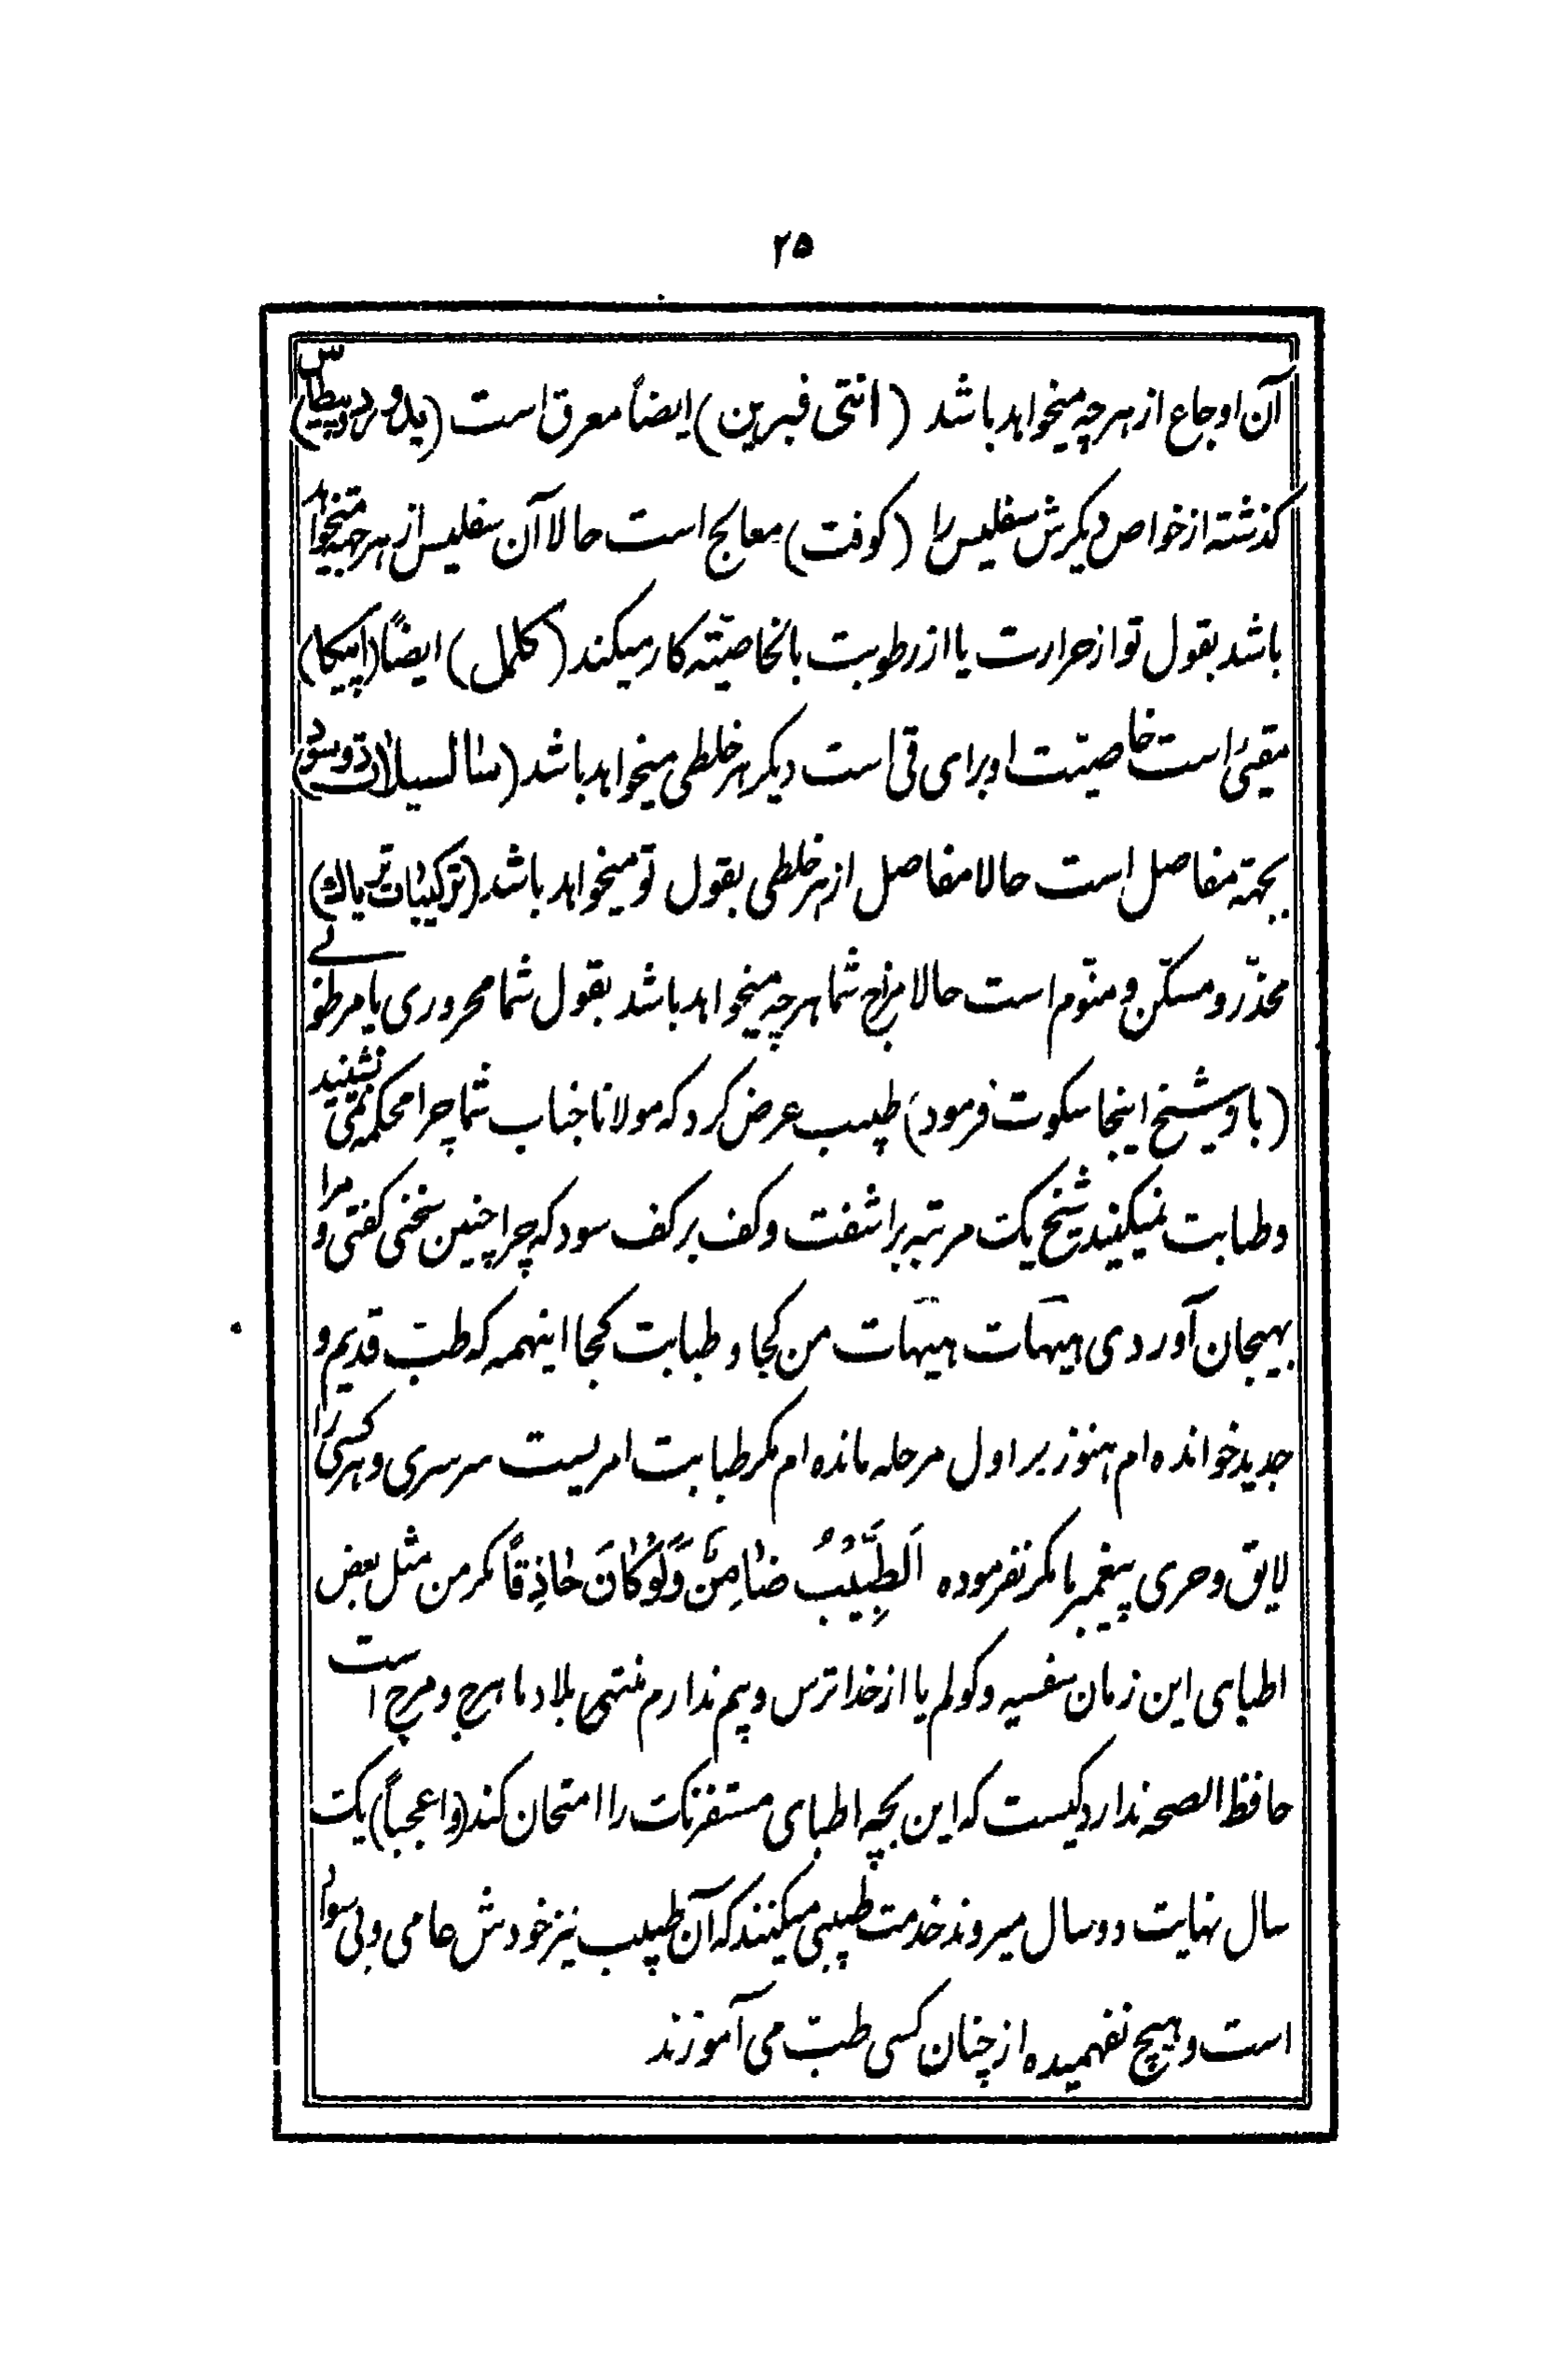 ۲۵
آن اوجاع از هر چه میخواهد باشد (انتی فبرین) ایضاً معرق است (یدور دپطاس)
کذشته از خواص دیکرش سفلیس را (کوفت) معالج است حالا آن سفلیس از هر جه میخواهد
باشد بقول تو از حرارت یا از رطوبت بالخاصیّته کار میکند (کلمل) ایضاً (اپیکا)
مقیئ است خاصیّت او برای قی است دیکر هر خلطی میخواهد باشد (سالسیلات دوسود)
بجهته مفاصل است حالا مفاصل از هر خلطی بقول تو میخواهد باشد (ترکیبات تریاك)
مخدّر و مسکّن و منوّم است حالا مزاج شما هر چه میخواهد باشد بقول شما محروری یا مرطوبی
(باو شیخ اینجا سکوت فرمود) طبیب عرض کرد که مولانا جناب شما چرا محکمه نمی نشینید
و طبابت نمیکنید شیخ یک مرتبه براشفت و کف بر کف سود که چرا چنین سخنی کفتی و مرا
بهیجان آوردی هیهات هیهات من کجا و طبابت کجا اینهمه که طبّ قدیم و
جدید خوانده ام هنوز بر اول مرحله مانده ام مکر طبابت امریست سرسری و هر کسی را
لایق و حری پیغمبر ما مکر نفرموده اَلطَّبیبُ ضامِنٌ وَلَوْکانَ حاذِقاً مکر من مثل بعض
اطبای این زمان سفیه و کولم یا از خدا ترس و بیم ندارم منتهی بلاد ما هرج و مرج است
حافظ الصحه ندارد کیست که این بچه اطبای مستفرنک را امتحان کند (وا عجباً) یک
سال نهایت دو سال میروند خدمت طبیبی میکنند که آن طبیب نیز خودش عامی و بی سواد
است و هیچ نفهمیده از چنان کسی طبّ می آموزند